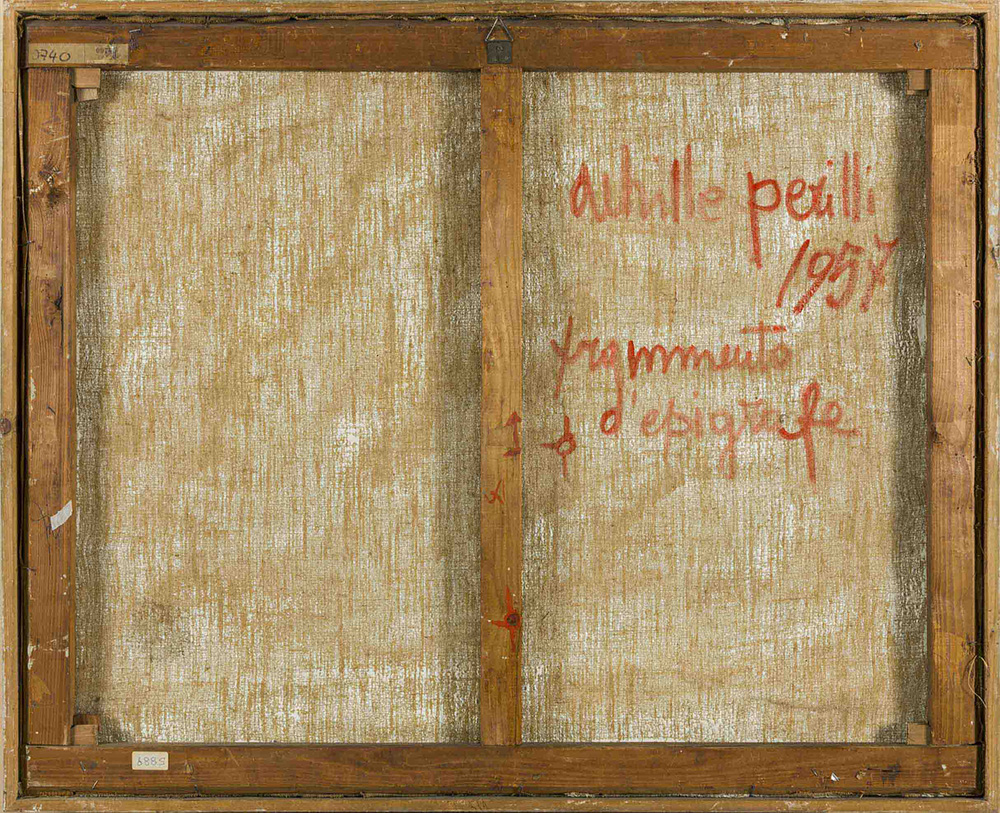 3740
achille perilli
1957
frammento
d'epigrafe